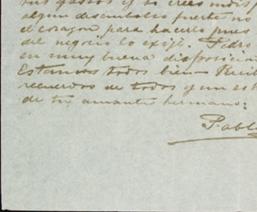 tus gastos y si crees indis
algun desembolso fuerte no
el corazon para hacerlo pues
del negocio lo exije. Pedro
en muy buena disposicion
Estamos todos bien. Recibe
recuerdos de todos y un es
de tu amante hermano:
Pablo